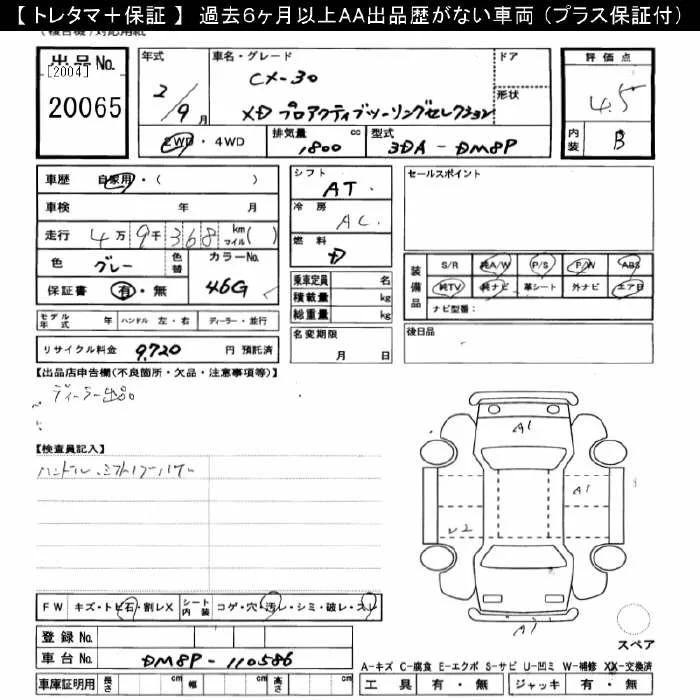 【 トレタマ＋保証 】 過去６ヶ月以上ＡＡ出品歴がない車両（プラス保証付）
出品No.
[2004]
20065
年式
2/9月
車名・グレード
CX-30
XD プロアクティブツーリングセレクション
ドア
形状
評価点
4.5
内装 B
2WD・4WD
排気量 1800 cc
型式 3DA-DM8P
車歴 自家用・( )
車検 年 月
走行 4万9千368 km マイル( )
色 グレー
色替
カラーNo. 46G
保証書 有・無
モデル年式 年 ハンドル 左・右 ディーラー・並行
リサイクル料金 9,720 円 預託済
シフト
AT
冷房
AC
燃料
D
乗車定員 名
積載量 kg
総重量 kg
名変期限
月 日
セールスポイント
装備品
S/R 純A/W P/S P/W ABS
純TV 純ナビ 革シート 外ナビ エアB
ナビ型番：
後日品
【出品店申告欄(不良箇所・欠品・注意事項等)】
ディーラー出品
【検査員記入】
A1
A1
FW キズ・トビ石・割レX シート内装 コゲ・穴・汚レ・シミ・破レ・スレ
登録No.
車台No. DM8P-110586
車庫証明用 長さ cm 幅 cm 高さ cm
スペア
A-キズ C-腐食 E-エクボ S-サビ U-凹ミ W-補修 XX-交換済
工具 有・無 ジャッキ 有・無